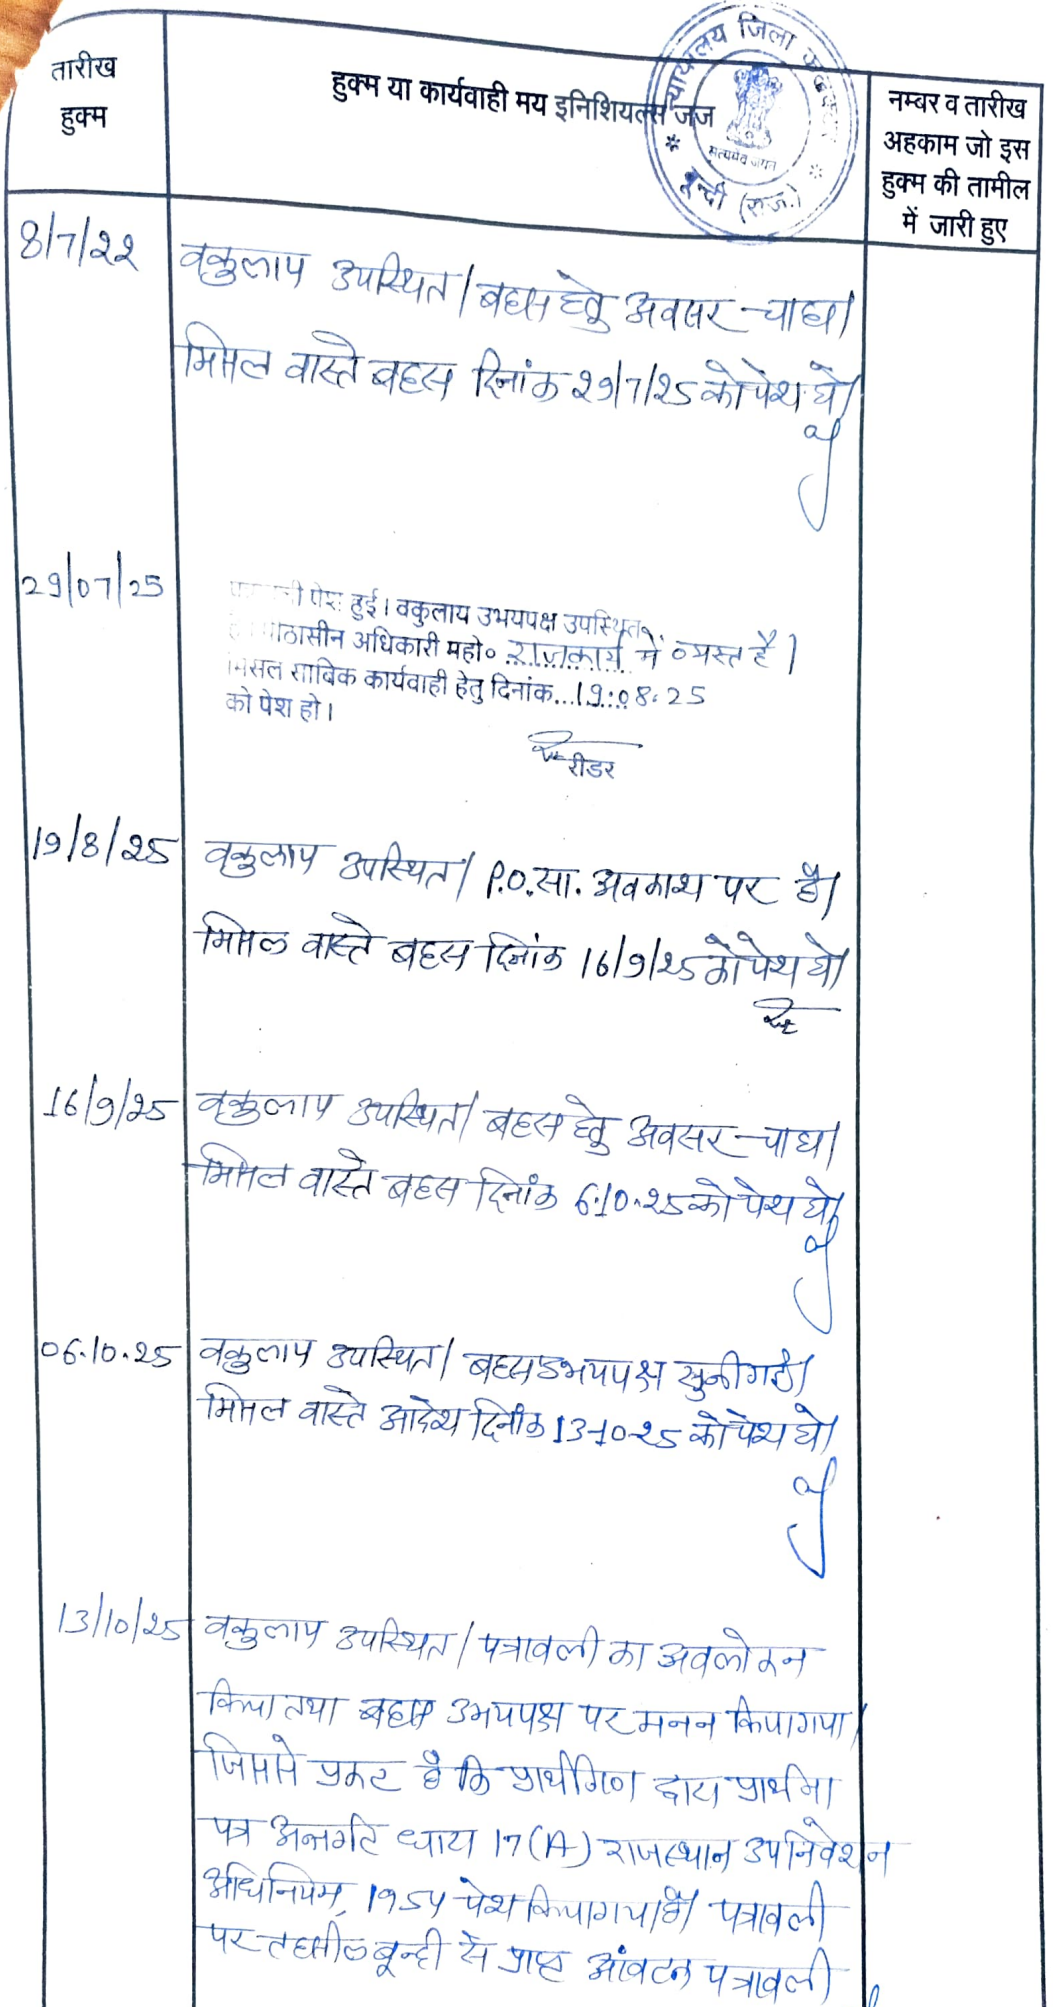 तारीख
हुक्म
हुक्म या कार्यवाही मय इनिशियल्स जज
न्यायालय जिला कलक्टर
सत्यमेव जयते
बून्दी (राज.)
नम्बर व तारीख
अहकाम जो इस
हुक्म की तामील
में जारी हुए
8/7/22
वकुलाय उपस्थित/ बहस हेतु अवसर चाहा/
मिसल वास्ते बहस दिनांक 29/7/25 को पेश हो/
29/07/25
पेश हुई। वकुलाय उभयपक्ष उपस्थित
पीठासीन अधिकारी महो० राजकार्य में व्यस्त है।
मिसल साबिक कार्यवाही हेतु दिनांक...19.08.25
को पेश हो।
रीडर
19/8/25
वकुलाय उपस्थित/ P.O.सा. अवकाश पर है/
मिसल वास्ते बहस दिनांक 16/9/25 को पेश हो/
16/9/25
वकुलाय उपस्थित/ बहस हेतु अवसर चाहा/
मिसल वास्ते बहस दिनांक 6.10.25 को पेश हो/
06.10.25
वकुलाय उपस्थित/ बहस उभयपक्ष सुनी गई/
मिसल वास्ते आदेश दिनांक 13-10-25 को पेश हो/
13/10/25
वकुलाय उपस्थित/ पत्रावली का अवलोकन
किया तथा बहस उभयपक्ष पर मनन किया गया/
जिससे प्रकट है कि प्रार्थीगण द्वारा प्रार्थना
पत्र अन्तर्गत धारा 17(A) राजस्थान उपनिवेशन
अधिनियम, 1954 पेश किया गया है/ पत्रावली
पर तहसील बून्दी से प्राप्त आंवटन पत्रावली